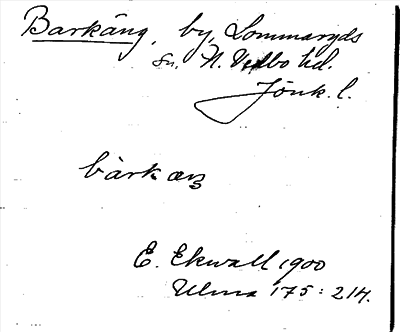 Barkäng, by, Lommaryds
sn. N. Vedbo hd.
Jönk. l.
bàrkæŋ
E. Ekwall 1900
Ulma 175:214.